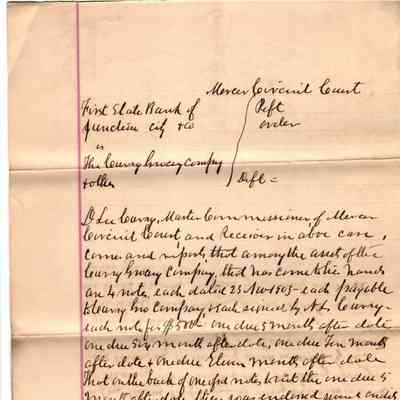 Mercer Circuit Court
First State Bank of Plft
Junction City &co order
vs
The Curry Grocery Company
& other Deft =
D Lee Curry, Master Commissioner, of Mercer
Circuit Court and Receiver in above case,
comes and reports, that among the asset of the
Curry Grocery Company, that has come to his hands
are 4 notes, each dated 25 Nov 1903 - each payable
to Curry Gro Company, & each signed by N. L. Curry -
each note for one due 5 month after date
one due six month after date, one due ten month
after date & one due Eleven month after date
That on the back of one of sd notes, to wit the one due 5
month after date there was endorsed given credit